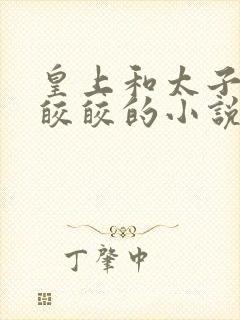 皇上和太子
皎皎的小說
丁肇中